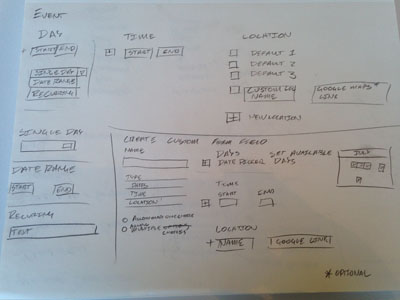 EVENT
DAY
START END
SINGLE DAY
DATE RANGE
RECURING
TIME
START END
LOCATION
DEFAULT 1
DEFAULT 2
DEFAULT 3
CUSTOM LOC
NAME
GOOGLE MAPS *
LINK
NEW LOCATION
SINGLE DAY
DATE RANGE
START END
RECURING
TEXT
CREATE CUSTOM FORM FIELD
NAME
TYPE
DATES
TIME
LOCATION
MULTIPLE
DAYS
DATE PICKER
SET AVAILABLE
DAYS
JULY
TIME
START END
LOCATION
+ NAME GOOGLE LINK
* OPTIONAL